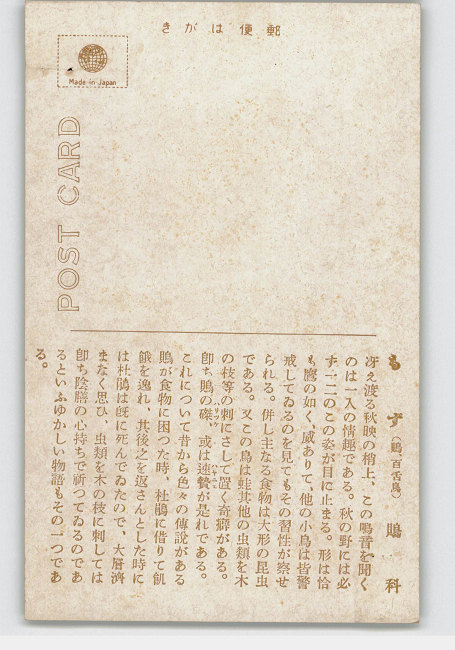 郵便はがき
Made in Japan
POST CARD
もず（鵙、百舌鳥）鵙科
冴え渡る秋映の梢上、この鳴音を聞く
のは一入の情趣である。秋の野には必
ず一二のこの姿が目に止まる。形は恰
も鷹の如く、威ありて、他の小鳥は皆警
戒してゐるのを見てもその習性が察せ
られる。併し主なる食物は大形の昆虫
である。又この鳥は蛙其他の虫類を木
の枝等の刺にさして置く奇癖がある。
卽ち鵙の磔、或は速贄が是れである。
これについて昔から色々の傳說がある
鵙が食物に困つた時、杜鵑に借りて飢
餓を逸れ、其後之を返さんとした時に
は杜鵑は旣に死んでゐたので、大層濟
まなく思ひ、虫類を木の枝に刺しては
卽ち陰膳の心持ちで祈つてゐるのであ
るといふゆかしい物語もその一つであ
る。